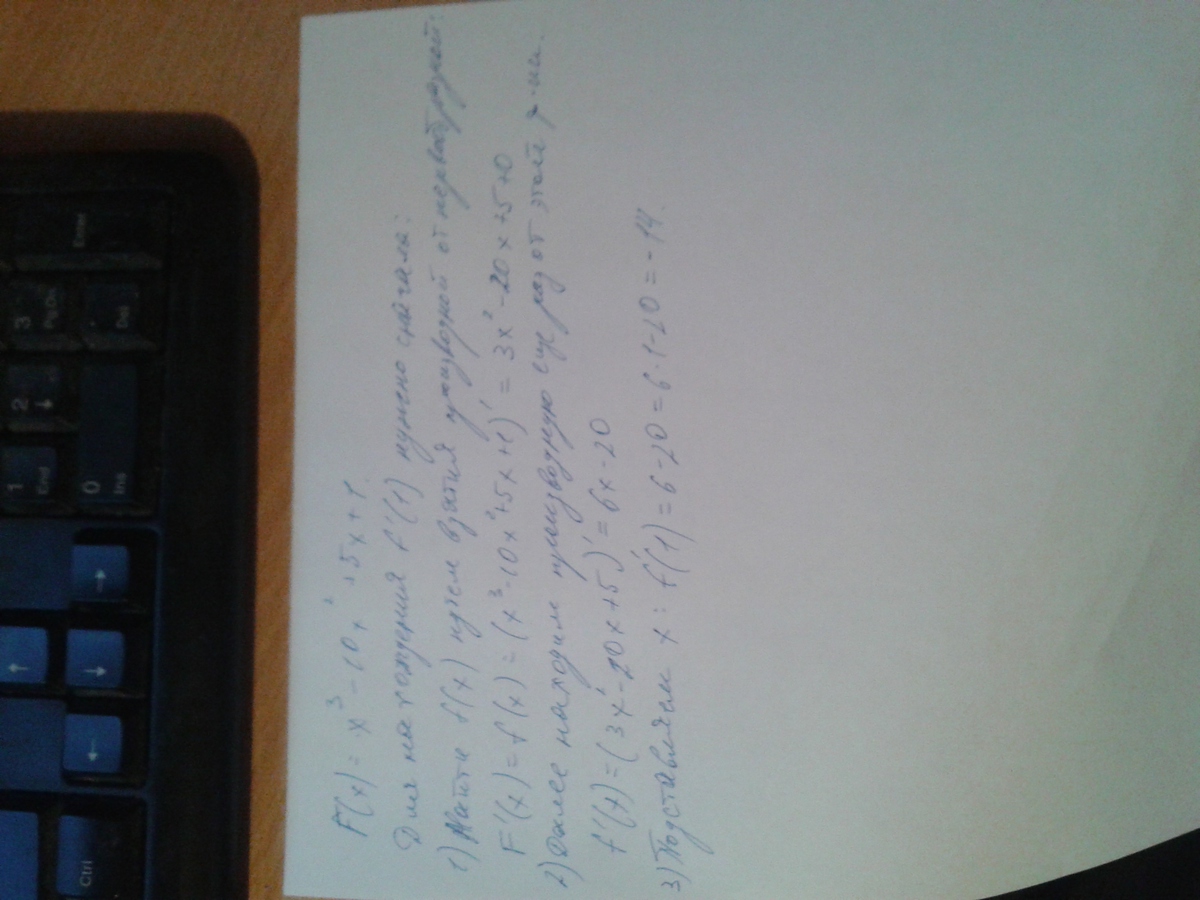 F(x) = x³ - 10x² + 5x + 1.
Для нахождения f'(1) нужно сначала:
1) Найти f(x) путем взятия производной от первообразной:
F'(x) = f(x) = (x³ - 10x² + 5x + 1)' = 3x² - 20x + 5 + 0
2) Далее находим производную еще раз от этой ф-ии.
f'(x) = (3x² - 20x + 5)' = 6x - 20
3) Подставляем x: f'(1) = 6 - 20 = 6·1 - 20 = -14.
Enter
3 PgDn
. Del
2 ↓
1 End
0 Ins
→
↑
↓
←
Ctrl